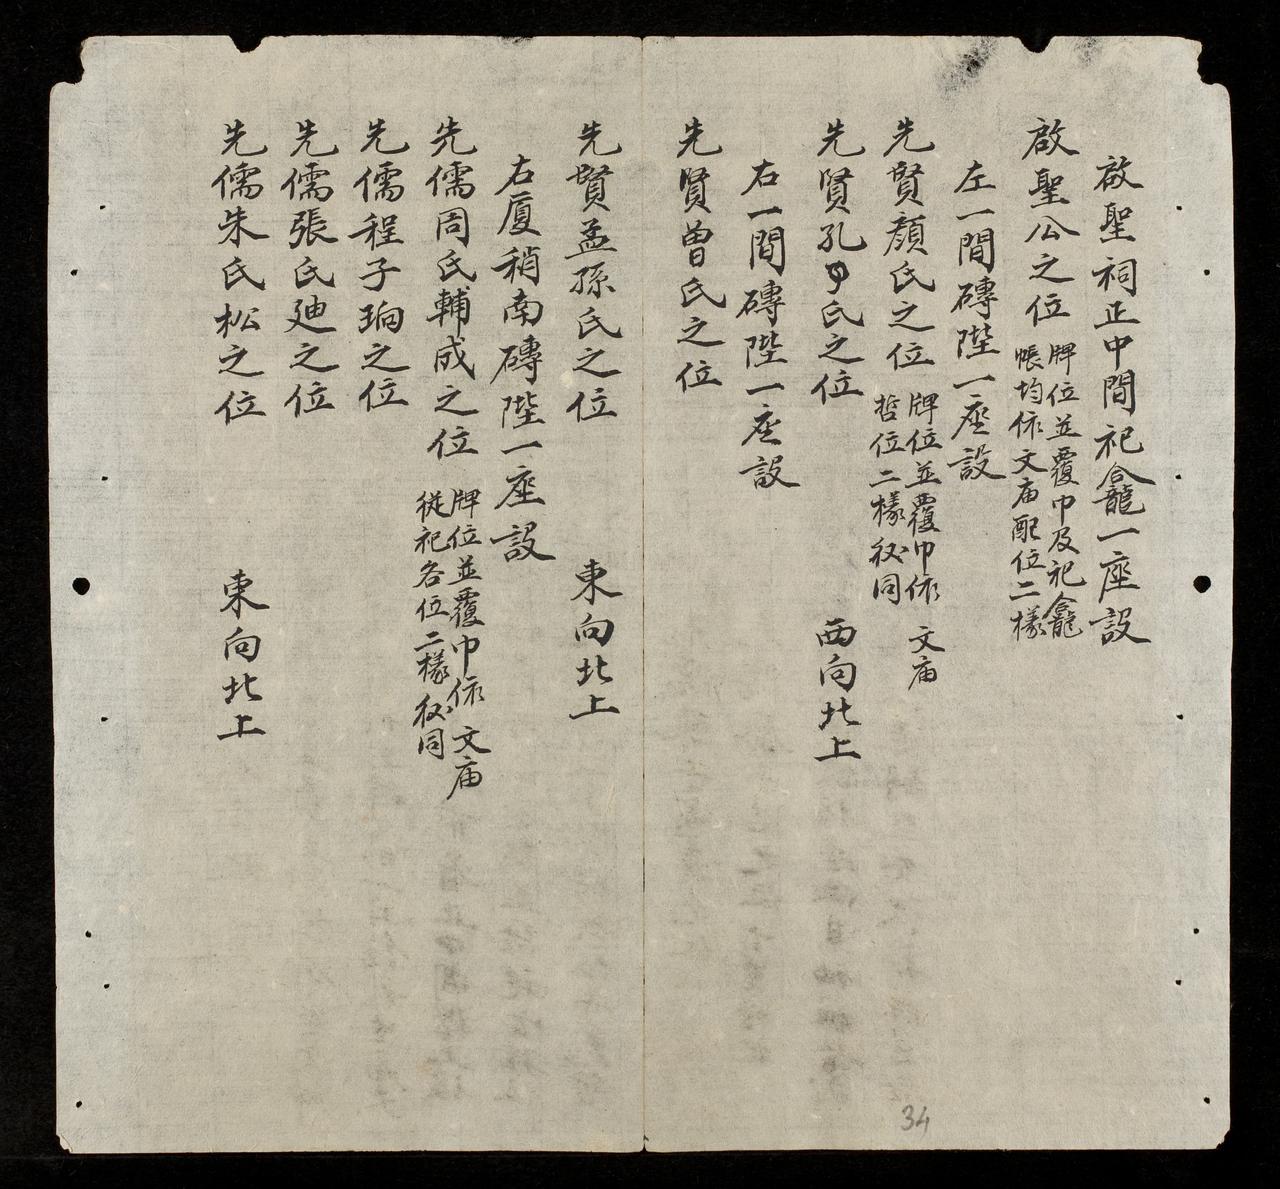 啟聖祠正中間祀龕一座設
啟聖公之位
牌位並覆巾及祀龕
帳均依文庙配位二樣
左一間磚陛一座設
先賢顏氏之位
牌位並覆巾依 文庙
哲位二樣
同
先賢孔氏之位 西向北上
右一間磚陛一座設
先賢曾氏之位
先賢孟孫氏之位 東向北上
右厦稍南磚陛一座設
先儒周氏輔成之位
牌位並覆巾依 文庙
從祀各位二樣
同
先儒程子珦之位
先儒張氏廸之位
先儒朱氏松之位 東向北上
34